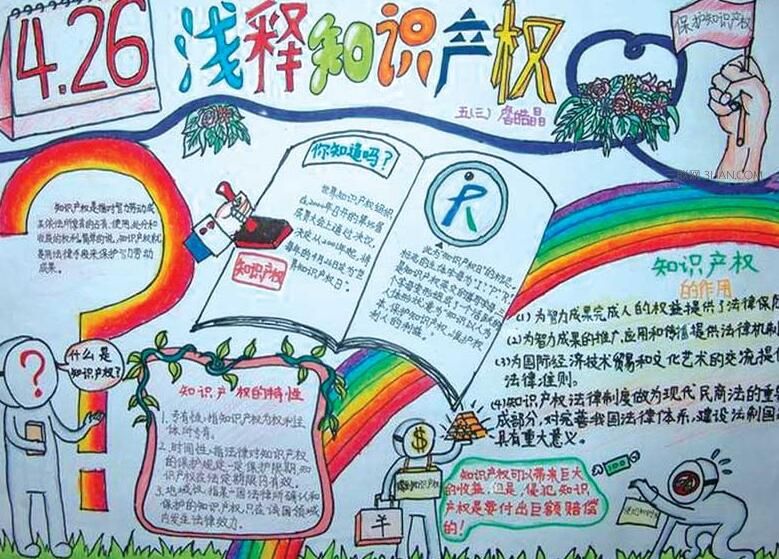 4.26
浅释知识产权
五(三)
保护知识产权
你知道吗?
世界知识产权组织
在2000年召开的第35届
成员大会上通过决议,
决定从2001年起,将
每年的4月26日定为世
界知识产权日。
知识产权
R
知识产权是指对智力劳动成
果依法所享有的占有、使用、处分和
收益的权利。简单的说,知识产权就
是用法律手段来保护智力劳动
成果。
什么是
知识产权?
知识产权的特性
1.专有性:指知识产权为权利主
体所专有。
2.时间性:指法律对知识产权
的保护规定一定保护期限,知
识产权在法定期限内有效。
3.地域性:指某一国法律所确认和
保护的知识产权,只在该国领域
内发生法律效力。
知识产权
的作用
(1)为智力成果完成人的权益提供了法律保
(2)为智力成果的推广应用和传播提供法律机
(3)为国际经济技术贸易和文化艺术的交流提
法律准则。
(4)知识产权法律制度做为现代民商法的重
成部分,对完善我国法律体系,建设法制国
具有重大意义。
$
知识产权可以带来巨大
的收益,但是,侵犯知识
产权是要付出巨额赔偿
的!
3LIAN.COM